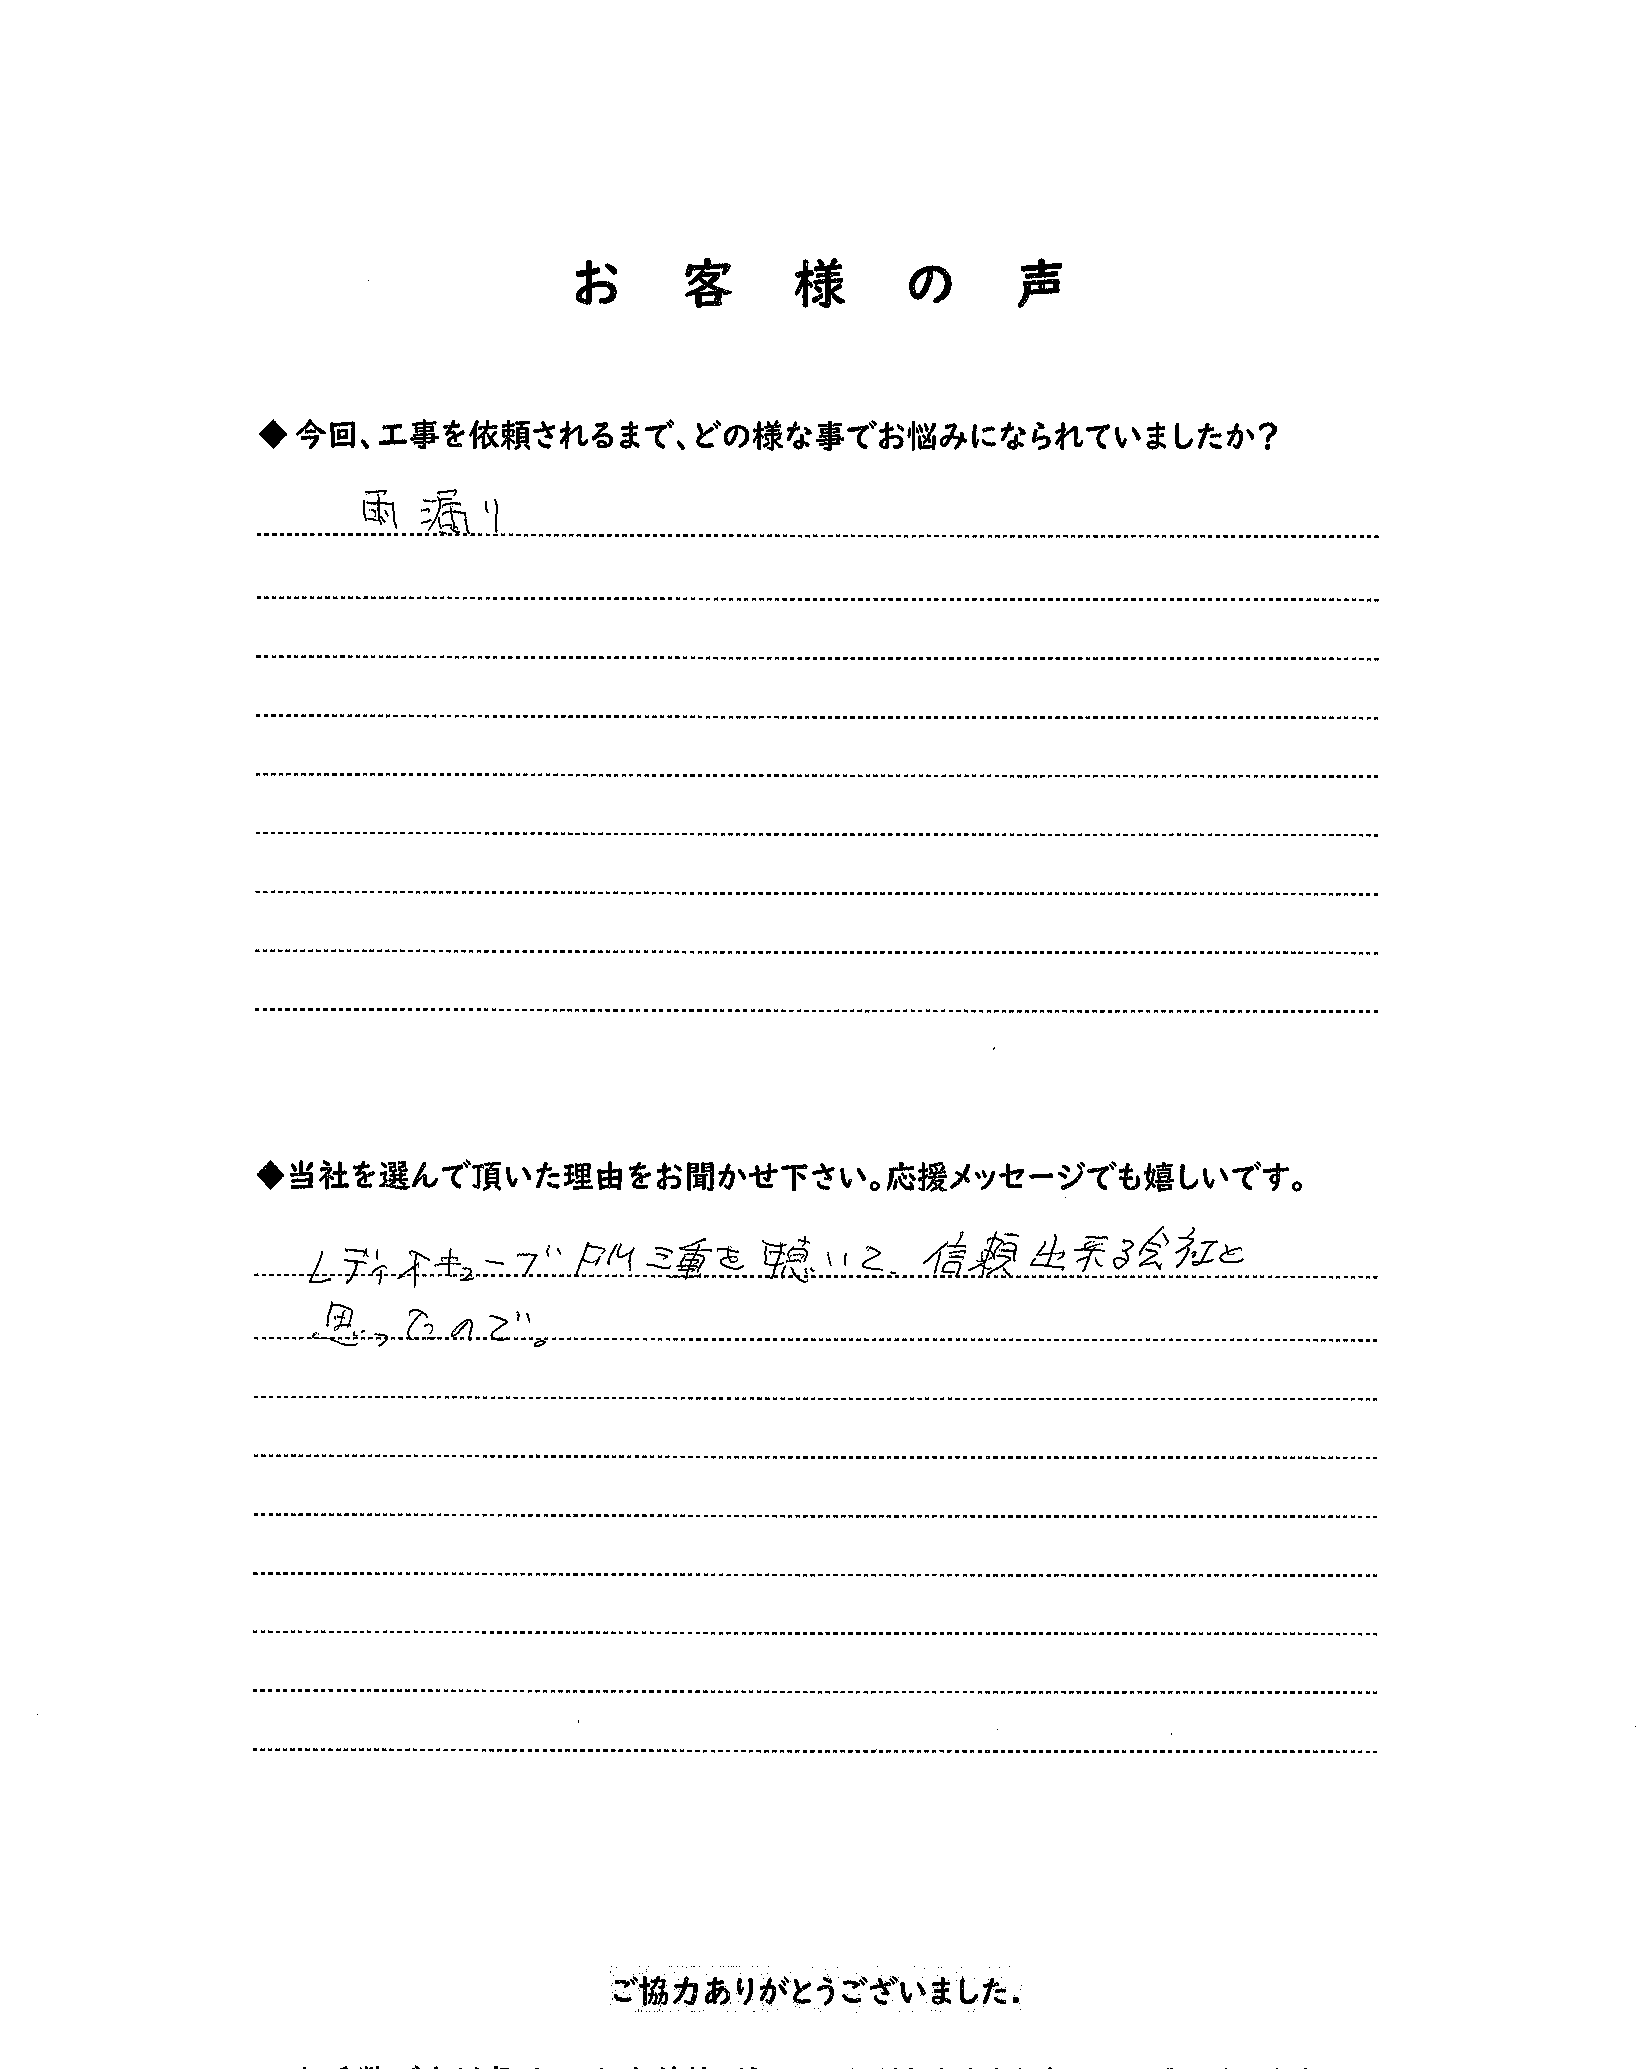 お客様の声
◆今回、工事を依頼されるまで、どの様な事でお悩みになられていましたか?
雨漏り
◆当社を選んで頂いた理由をお聞かせ下さい。応援メッセージでも嬉しいです。
レディオキューブFM三重を聴いて、信頼出来る会社と
思ったので。
ご協力ありがとうございました.